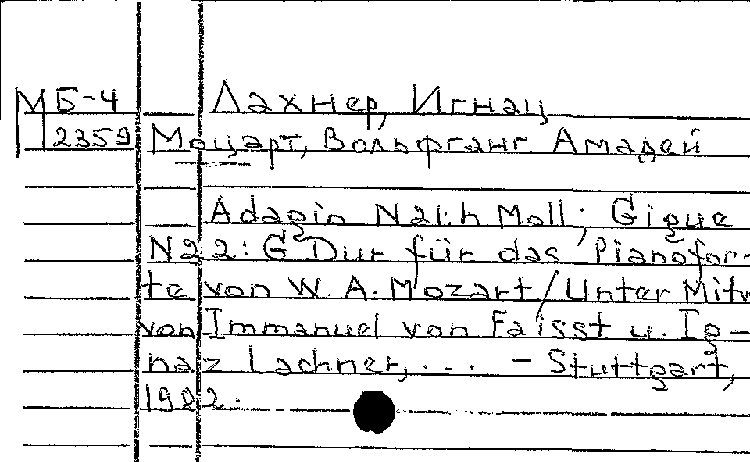 МБ-4 Лахнер, Игнац
2359 Моцарт, Вольфганг Амадей
Adagio N21:h Moll; Gigue
N22: G Dur für das Pianofor-
te von W. A. Mozart/Unter Mitw
von Immanuel von Faisst u. Ig-
naz Lachner,... - Stuttgart,